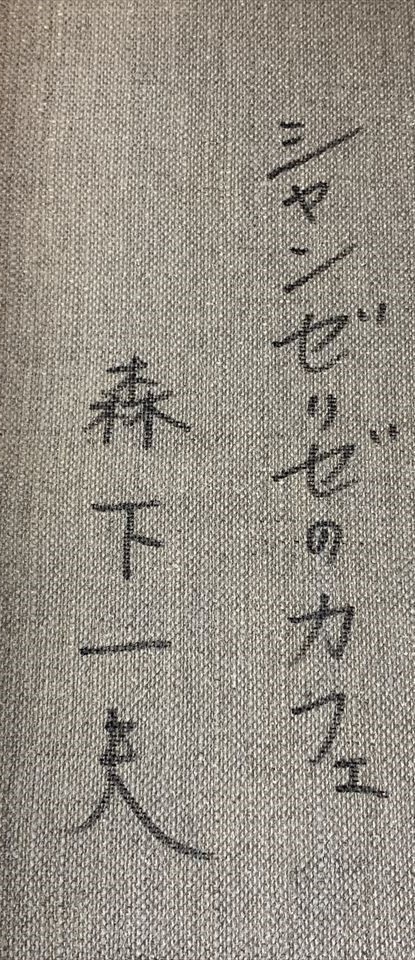 シャンゼリゼのカフェ
森下一夫